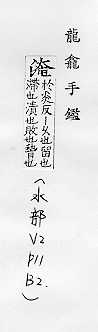 龍龕手鑑
淹
於炎反丨久也留也
滯也漬也敗也
(水部
V2
P11
B2.)